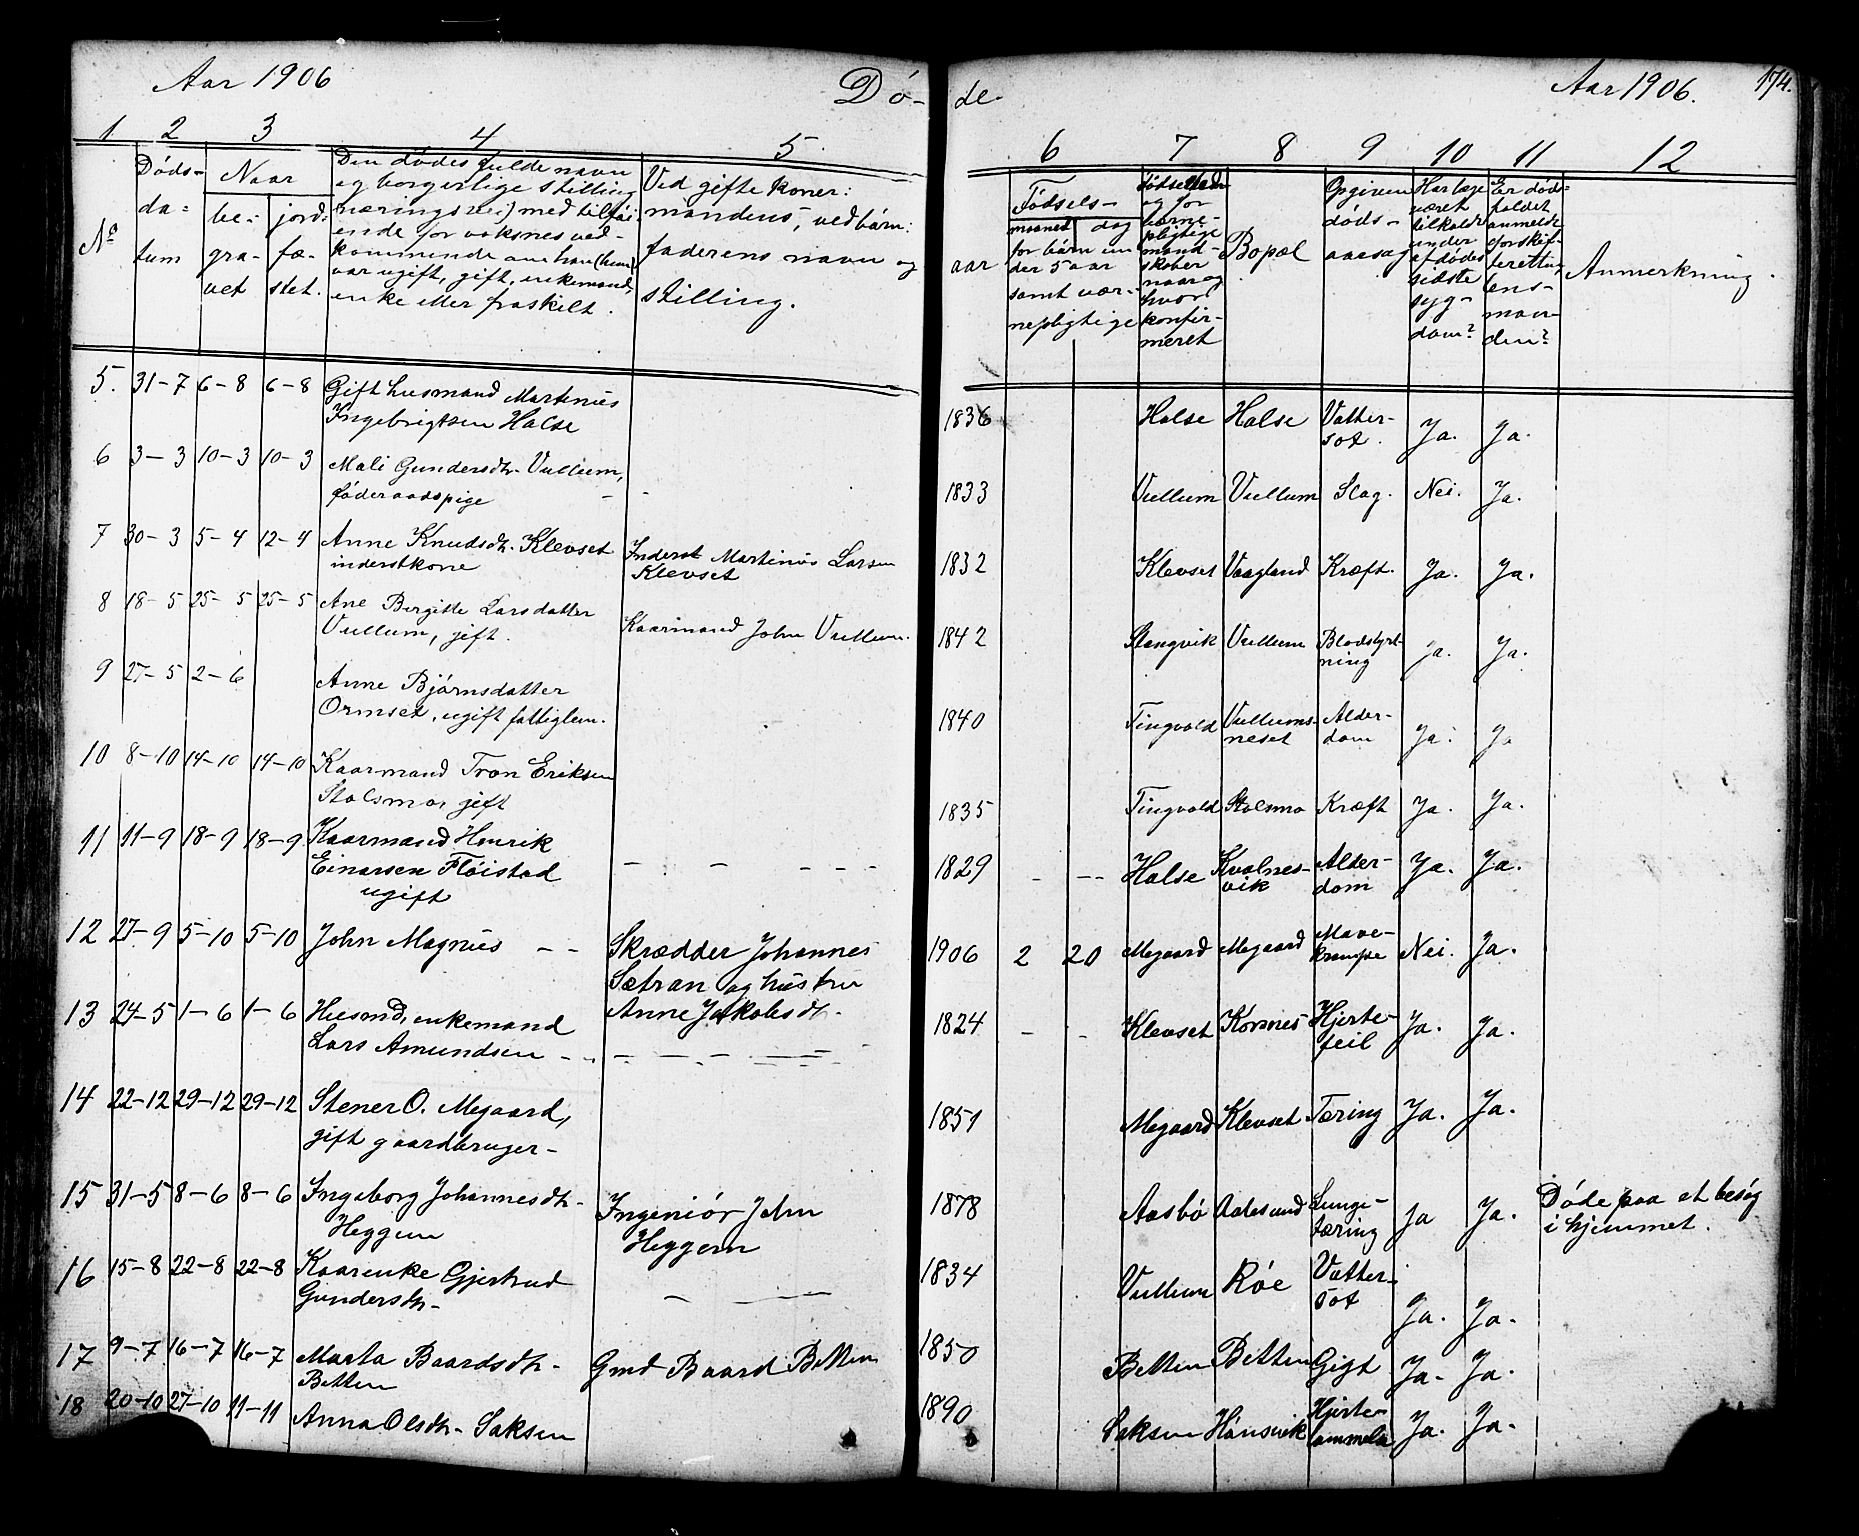 Aar 1906
Dö-
de.
Aar 1906.
174.
1 2 3 4 5
6 7 8 9 10 11 12
No
Døds-
da-
tum
Naar
be-
gra-
vet
jord-
fæ-
stet.
Den dødes fulde navn
og borgerlige stilling
(næringsvei) med tilføi-
ende for voksnes ved-
kommende om han (hun)
var ugift, gift, enkemand,
enke eller fraskilt.
Ved gifte koner:
mandens, ved børn:
faderens navn og
stilling.
aar
Fødsels-
maaned dag
for børn un
der 5 aar
samt vær-
nepligtige
Fødselsted
og for
værne-
pligtige
mand-
skaber
naar og
hvor
konfir-
meret
Bopæl
Opgiven
døds-
aarsag
Har læge
været
tilkaldt
under
afdødes
sidste
syg-
dom?
Er døds-
faldet
anmeldt
f. skif-
teretten,
lens-
man-
den?
Anmerkning.
5. 31-7 6-8 6-8 Gift husmand Martinus
Ingebrigtsen Halse
1836 Halse HalseВатter-
sot. Ja. Ja.
6 3-3 10-3 10-3 Mali Gundersdtr. Vullum,
föderaadspige - -
1833 Vullum Vullum Slag. Nei. Ja.
7 30-3 5-4 12-4 Anne Knudsdtr. Klevset
inderstkone
Inderst Martinus Larsen
Klevset
1832 Klevset Vaagland Kræft. Ja. Ja.
8 18-5 25-5 25-5 Ane Birgitte Larsdatter
Vullum, gift.
Kaarmand John Vullum.
1842 Stangvik Vullum Blodstyrt-
ning Ja. Ja.
9 27-5 2-6 Anne Bjørnsdatter
Ormset, ugift fattiglem.
1840 Tingvold Vullums-
neset Alder-
dom Ja. Ja
10 8-10 14-10 14-10 Kaarmand Tron Eriksen
Stolsmo, gift
1835 Tingvold Stolsmo Kræft Ja. Ja.
11 11-9 18-9 18-9 Kaarmand Henrik
Einarsen Fløistad
ugift
1829 - -- Halse Kvalnes-
vik Alder-
dom Ja. Ja.
12 27-9 5-10 5-10 John Magnus - -
Skrædder Johannes
Sætran og hustru
Anne Jakobsdt.
1906 2 20 Megaard Megaard Mave-
krampe Nei. Ja.
13 24-5 1-6 1-6 Husmd, enkemand
Lars Amundsen - -
1824 - - Klevset Kornes Hjerte-
feil Ja. Ja.
14 22-12 29-12 29-12 Stener O. Megaard,
gift gaardbruger-
1851 Megaard Klevset Tæring Ja. Ja.
15 31-5 8-6 8-6 Ingeborg Johannesdtr-
Heggem
Ingeniör John
Heggem
1878 Aasbø Aalesund Lunge-
tæring Ja Ja. Døde paa et besøg
i hjemmet.
16 15-8 22-8 22-8 Kaarenke Gjertrud
Gundersdtr-
1834 Vullum Røe Vatter-
sot Ja. Ja.
17 9-7 16-7 16-7 Marta Baardsdtr-
Betten
Gmd Baard Betten
1850 Betten Betten Gigt Ja- Ja.
18 20-10 27-10 11-11 Anna Olsdtr- Saksen
1890 Saksen Hønsvik Hjerte-
Ja. Ja-